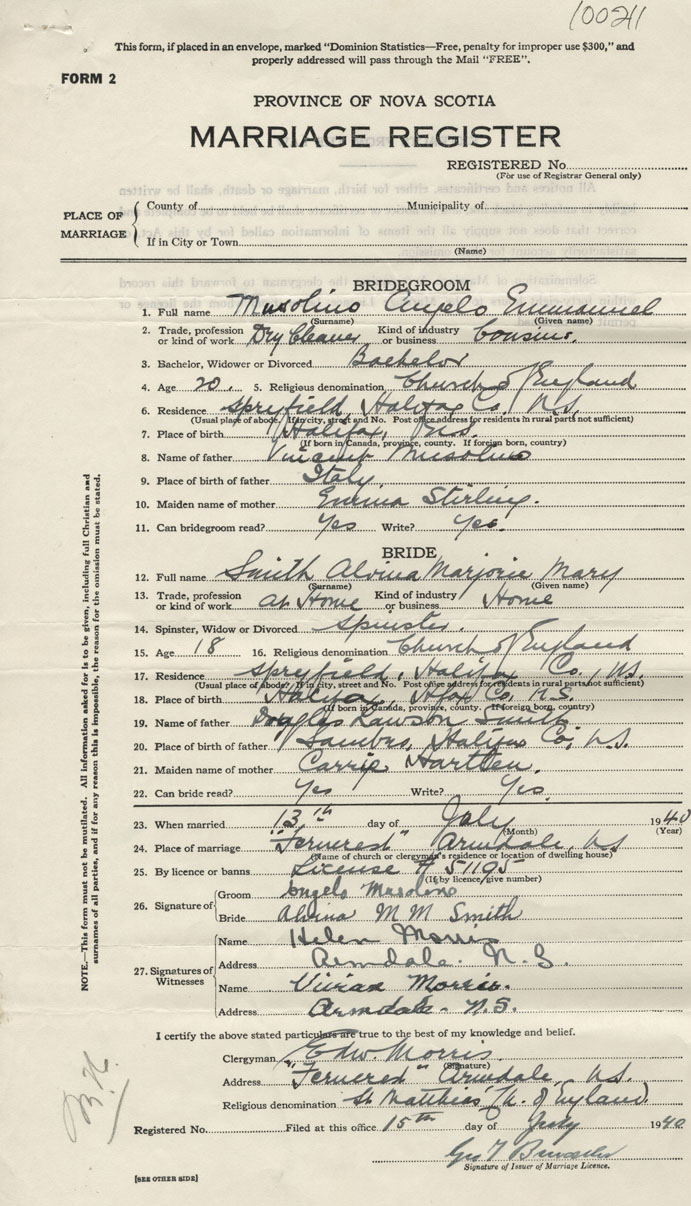 10021
This form, if placed in an envelope, marked "Dominion Statistics—Free, penalty for improper use $300," and
properly addressed will pass through the Mail "FREE".
FORM 2
PROVINCE OF NOVA SCOTIA
MARRIAGE REGISTER
REGISTERED No.
(For use of Registrar General only)
PLACE OF MARRIAGE
County of Municipality of
If in City or Town
(Name)
BRIDEGROOM
1. Full name Musolino Angelo Emmanuel
(Surname) (Given name)
2. Trade, profession or kind of work Dry Cleaner Kind of industry or business Cousins.
3. Bachelor, Widower or Divorced Bachelor
4. Age 20. 5. Religious denomination Church of England
6. Residence Spryfield, Halifax Co. N.S.
(Usual place of abode. If in city, street and No. Post office address for residents in rural parts not sufficient)
7. Place of birth Halifax, N.S.
(If born in Canada, province, county. If foreign born, country)
8. Name of father Vincent Musolino
9. Place of birth of father Italy.
10. Maiden name of mother Emma Stirling.
11. Can bridegroom read? Yes Write? Yes.
BRIDE
12. Full name Smith Alvina Marjorie Mary
(Surname) (Given name)
13. Trade, profession or kind of work at Home Kind of industry or business Home
14. Spinster, Widow or Divorced Spinster.
15. Age 18 16. Religious denomination Church of England
17. Residence Spryfield, Halifax Co, N.S.
(Usual place of abode? If in city, street and No. Post office address for residents in rural parts not sufficient)
18. Place of birth Halifax, Hfax Co. N.S.
(If born in Canada, province, county. If foreign born, country)
19. Name of father Douglas Lawson Smith
20. Place of birth of father Sambro, Halifax Co; N.S.
21. Maiden name of mother Carrie Hartlen.
22. Can bride read? Yes Write? Yes.
23. When married 13th day of July 1940
(Month) (Year)
24. Place of marriage "Fernerest" Armdale, N.S
(Name of church or clergyman's residence or location of dwelling house)
25. By licence or banns License # 51195
(If by licence give number)
26. Signature of
Groom Angelo Musolino
Bride Alvina M M Smith
27. Signatures of Witnesses
Name Helen Morris
Address Armdale. N.S.
Name Vivian Morris.
Address Armdale - N.S.
I certify the above stated particulars are true to the best of my knowledge and belief.
Clergyman Edw. Morris.
(Signature)
Address "Fernerest" Armdale, N.S.
Religious denomination St Matthias (Ch. of England)
Registered No. Filed at this office 15th day of July 1940
Geo T
Signature of Issuer of Marriage Licence.
[SEE OTHER SIDE]
NOTE.—This form must not be mutilated. All information asked for is to be given, including full Christian and
surnames of all parties, and if for any reason this is impossible, the reason for the omission must be stated.